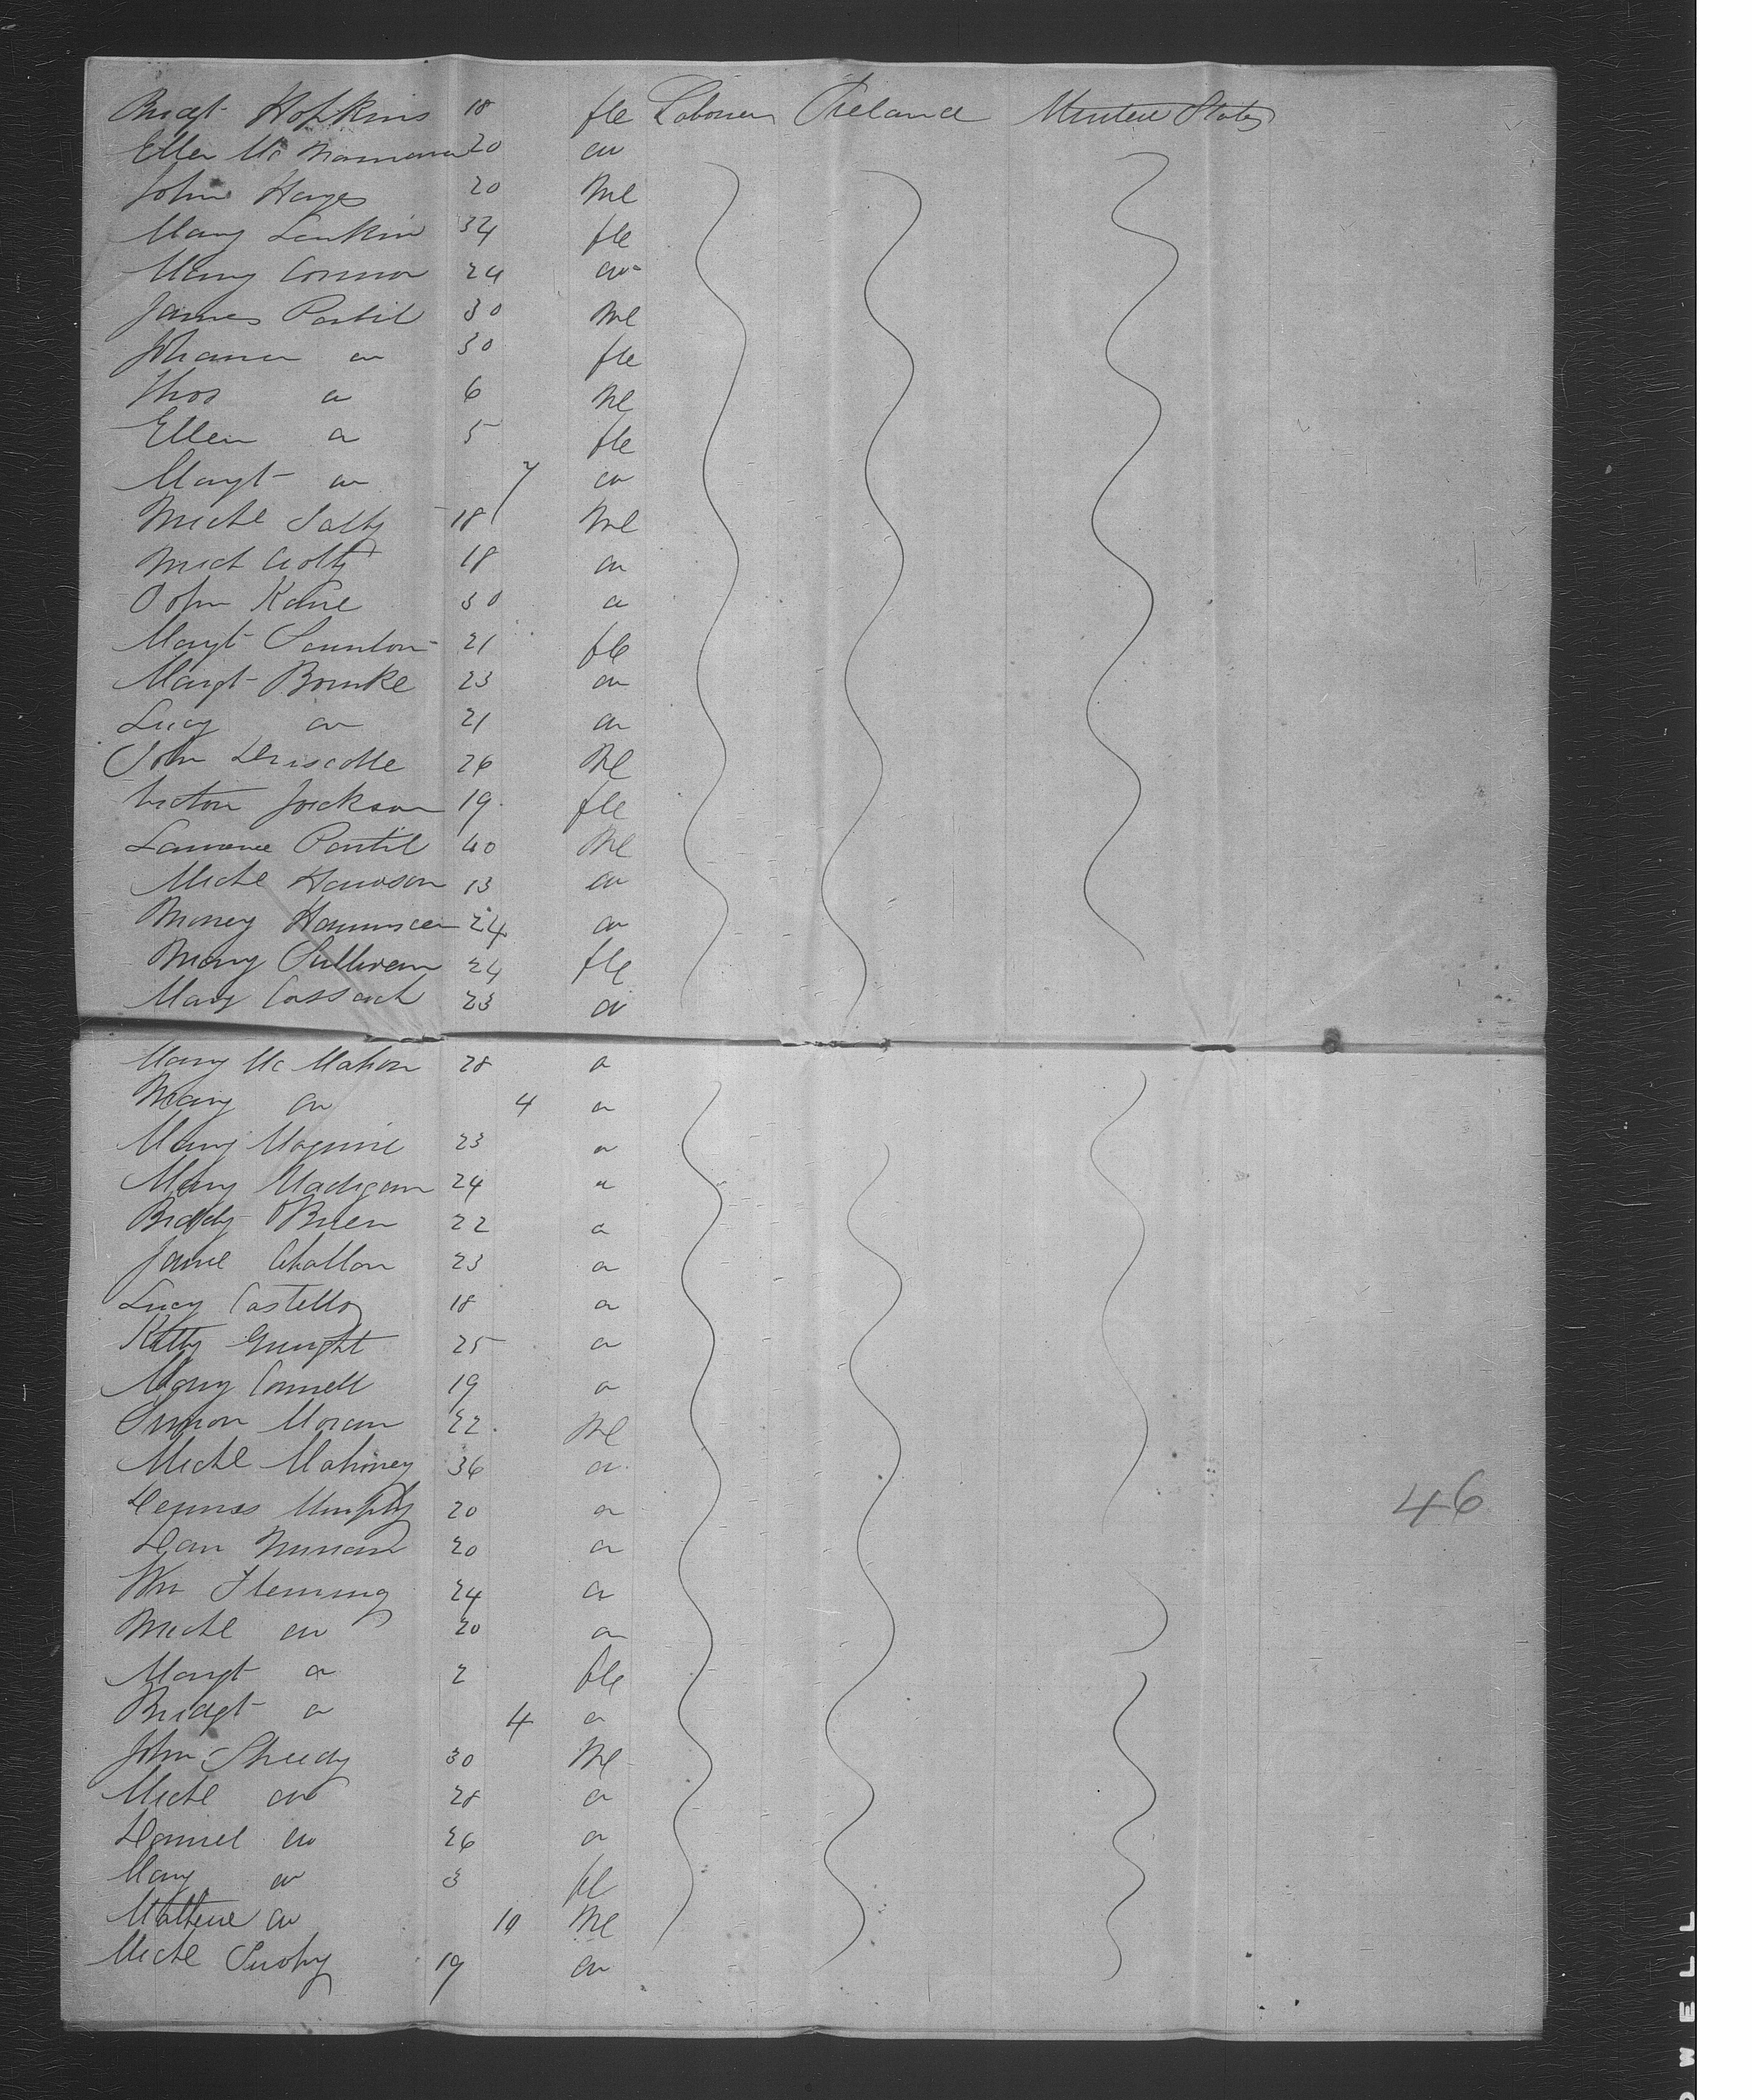 Bridgt Hopkins 18 fle Labourer Ireland United States
Ellen McNamara 20 do
John Hayes 20 Ml
Mary Larkin 34 fle
Mary Connor 24 do
James Portil 30 Ml
Johanna do 30 fle
Thos do 6 Ml
Ellen do 5 fle
Margt do 7 do
Michl 18 Ml
Mich 18 do
John Kane 30 do
Margt 21 fle
Margt Bourke 23 do
Lucy do 21 do
John Driscolle 26 Ml
Jackson 19 fle
Laurence Portil 40 Ml
Michl 13 do
24 do
Mary Sullivan 24 fle
Mary Cassack 23 do
Mary McMahon 28 do
Mary do 4 do
Mary Maguire 23 do
Mary Madigan 24 do
Biddy OBrien 22 do
Jane 23 do
Lucy Castello 18 do
Kitty 25 do
Mary Connell 19 do
Simon Moran 22 Ml
Michl Mahoney 36 do
46
Dennis Murphy 20 do
Dan 20 do
Wm Fleming 24 do
Michl do 20 do
Margt do 2 fle
Bridgt do 4 do
John Sheedy 30 Ml
Michl do 28 do
Daniel do 26 do
Mary do 3 fl
do 10 Ml
Michl 19 do
WELL